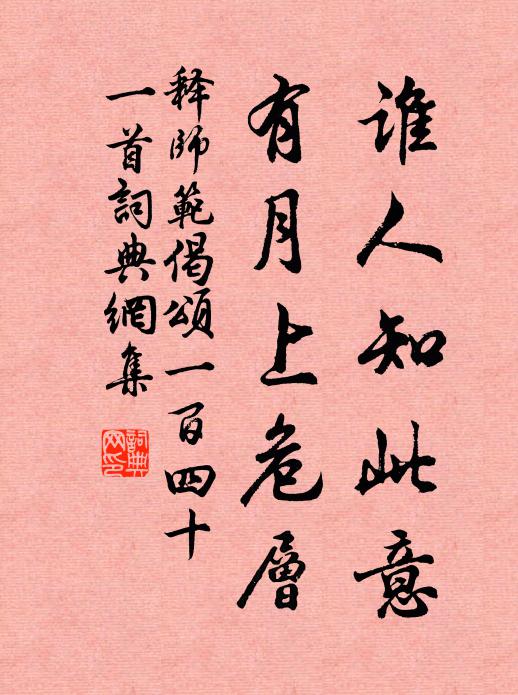 谁人知此意
有月上危層
释師範偈頌一百四十
一首詞典網集
詞典
网印